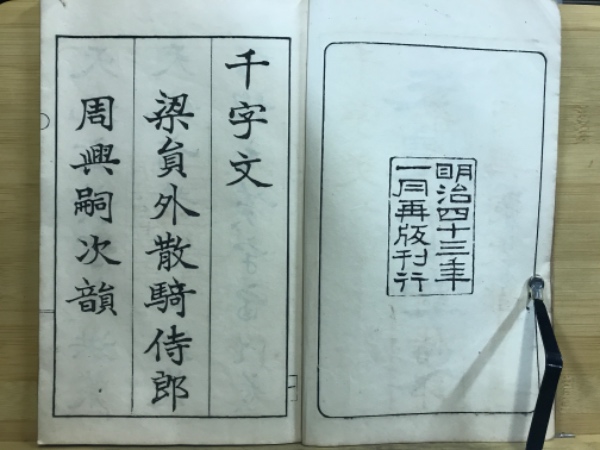 明治四十三年
一月再版刊行
千字文
梁貟外散騎侍郎
周興嗣次韻